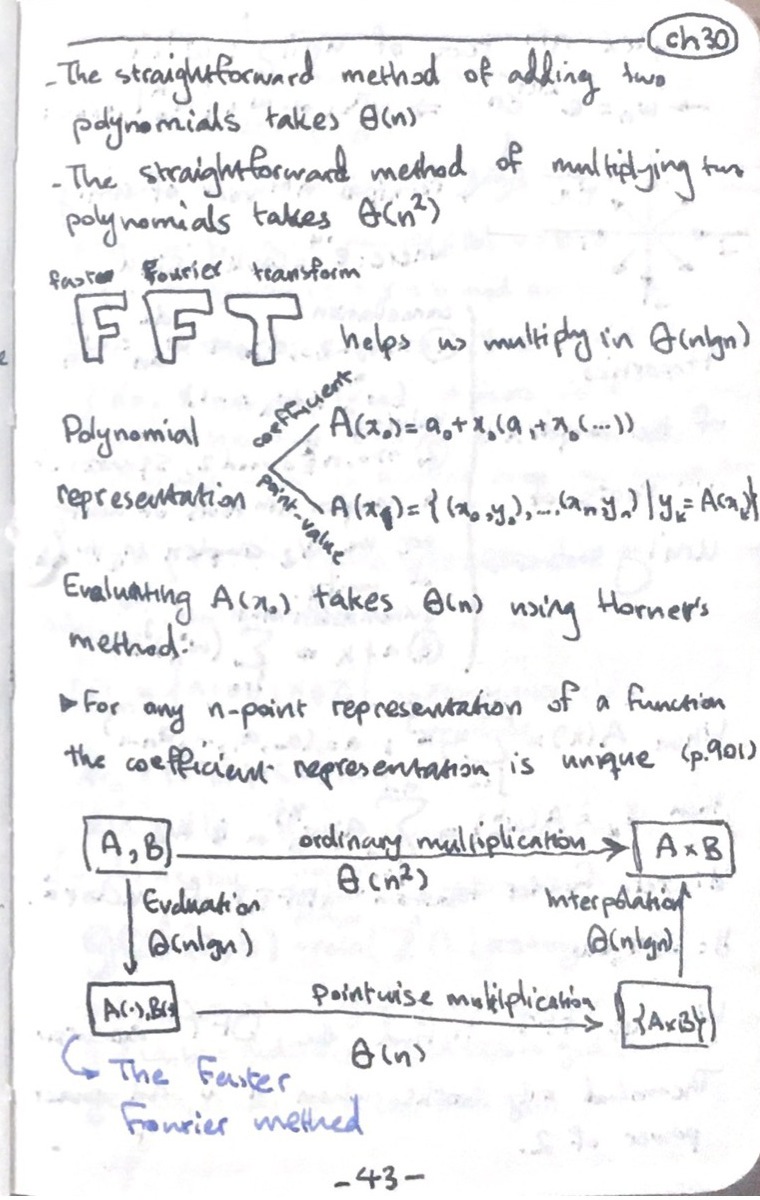 ch30
- The straightforward method of adding two
polynomials takes Θ(n)
- The straightforward method of multiplying two
polynomials takes Θ(n²)
faster Fourier transform
FFT helps us multiply in Θ(nlgn)
coefficient
A(x₀) = a₀ + x₀(a₁ + x₀(...))
Polynomial
representation
point-value
A(x) = {(x₀,y₀),...(xₙ,yₙ) | yₖ = A(xₖ)}
Evaluating A(x₀) takes Θ(n) using Horner's
method.
▸ For any n-point representation of a function
the coefficient representation is unique (p.901)
A, B ordinary multiplication A × B
Θ(n²)
Evaluation Interpolation
Θ(nlgn) Θ(nlgn).
A(·), B(·) pointwise multiplication {A×B}
Θ(n)
The Faster
Fourier method
-43-